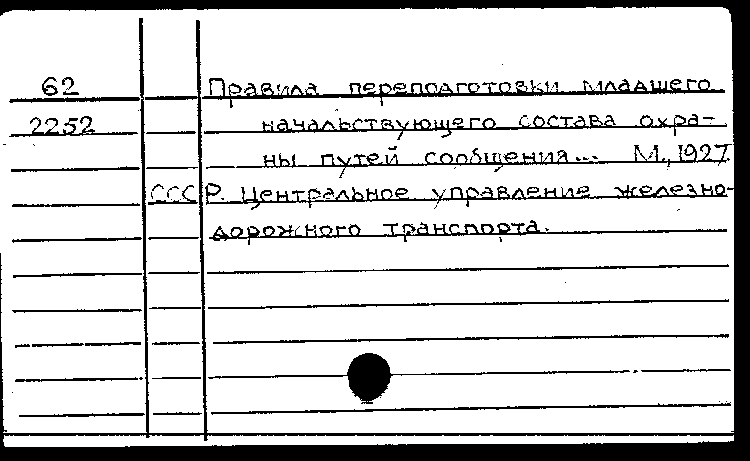 62 Правила переподготовки младшего
2252 начальствующего состава охра-
ны путей сообщения... М., 1927
СССР. Центральное управление железно-
дорожного транспорта.